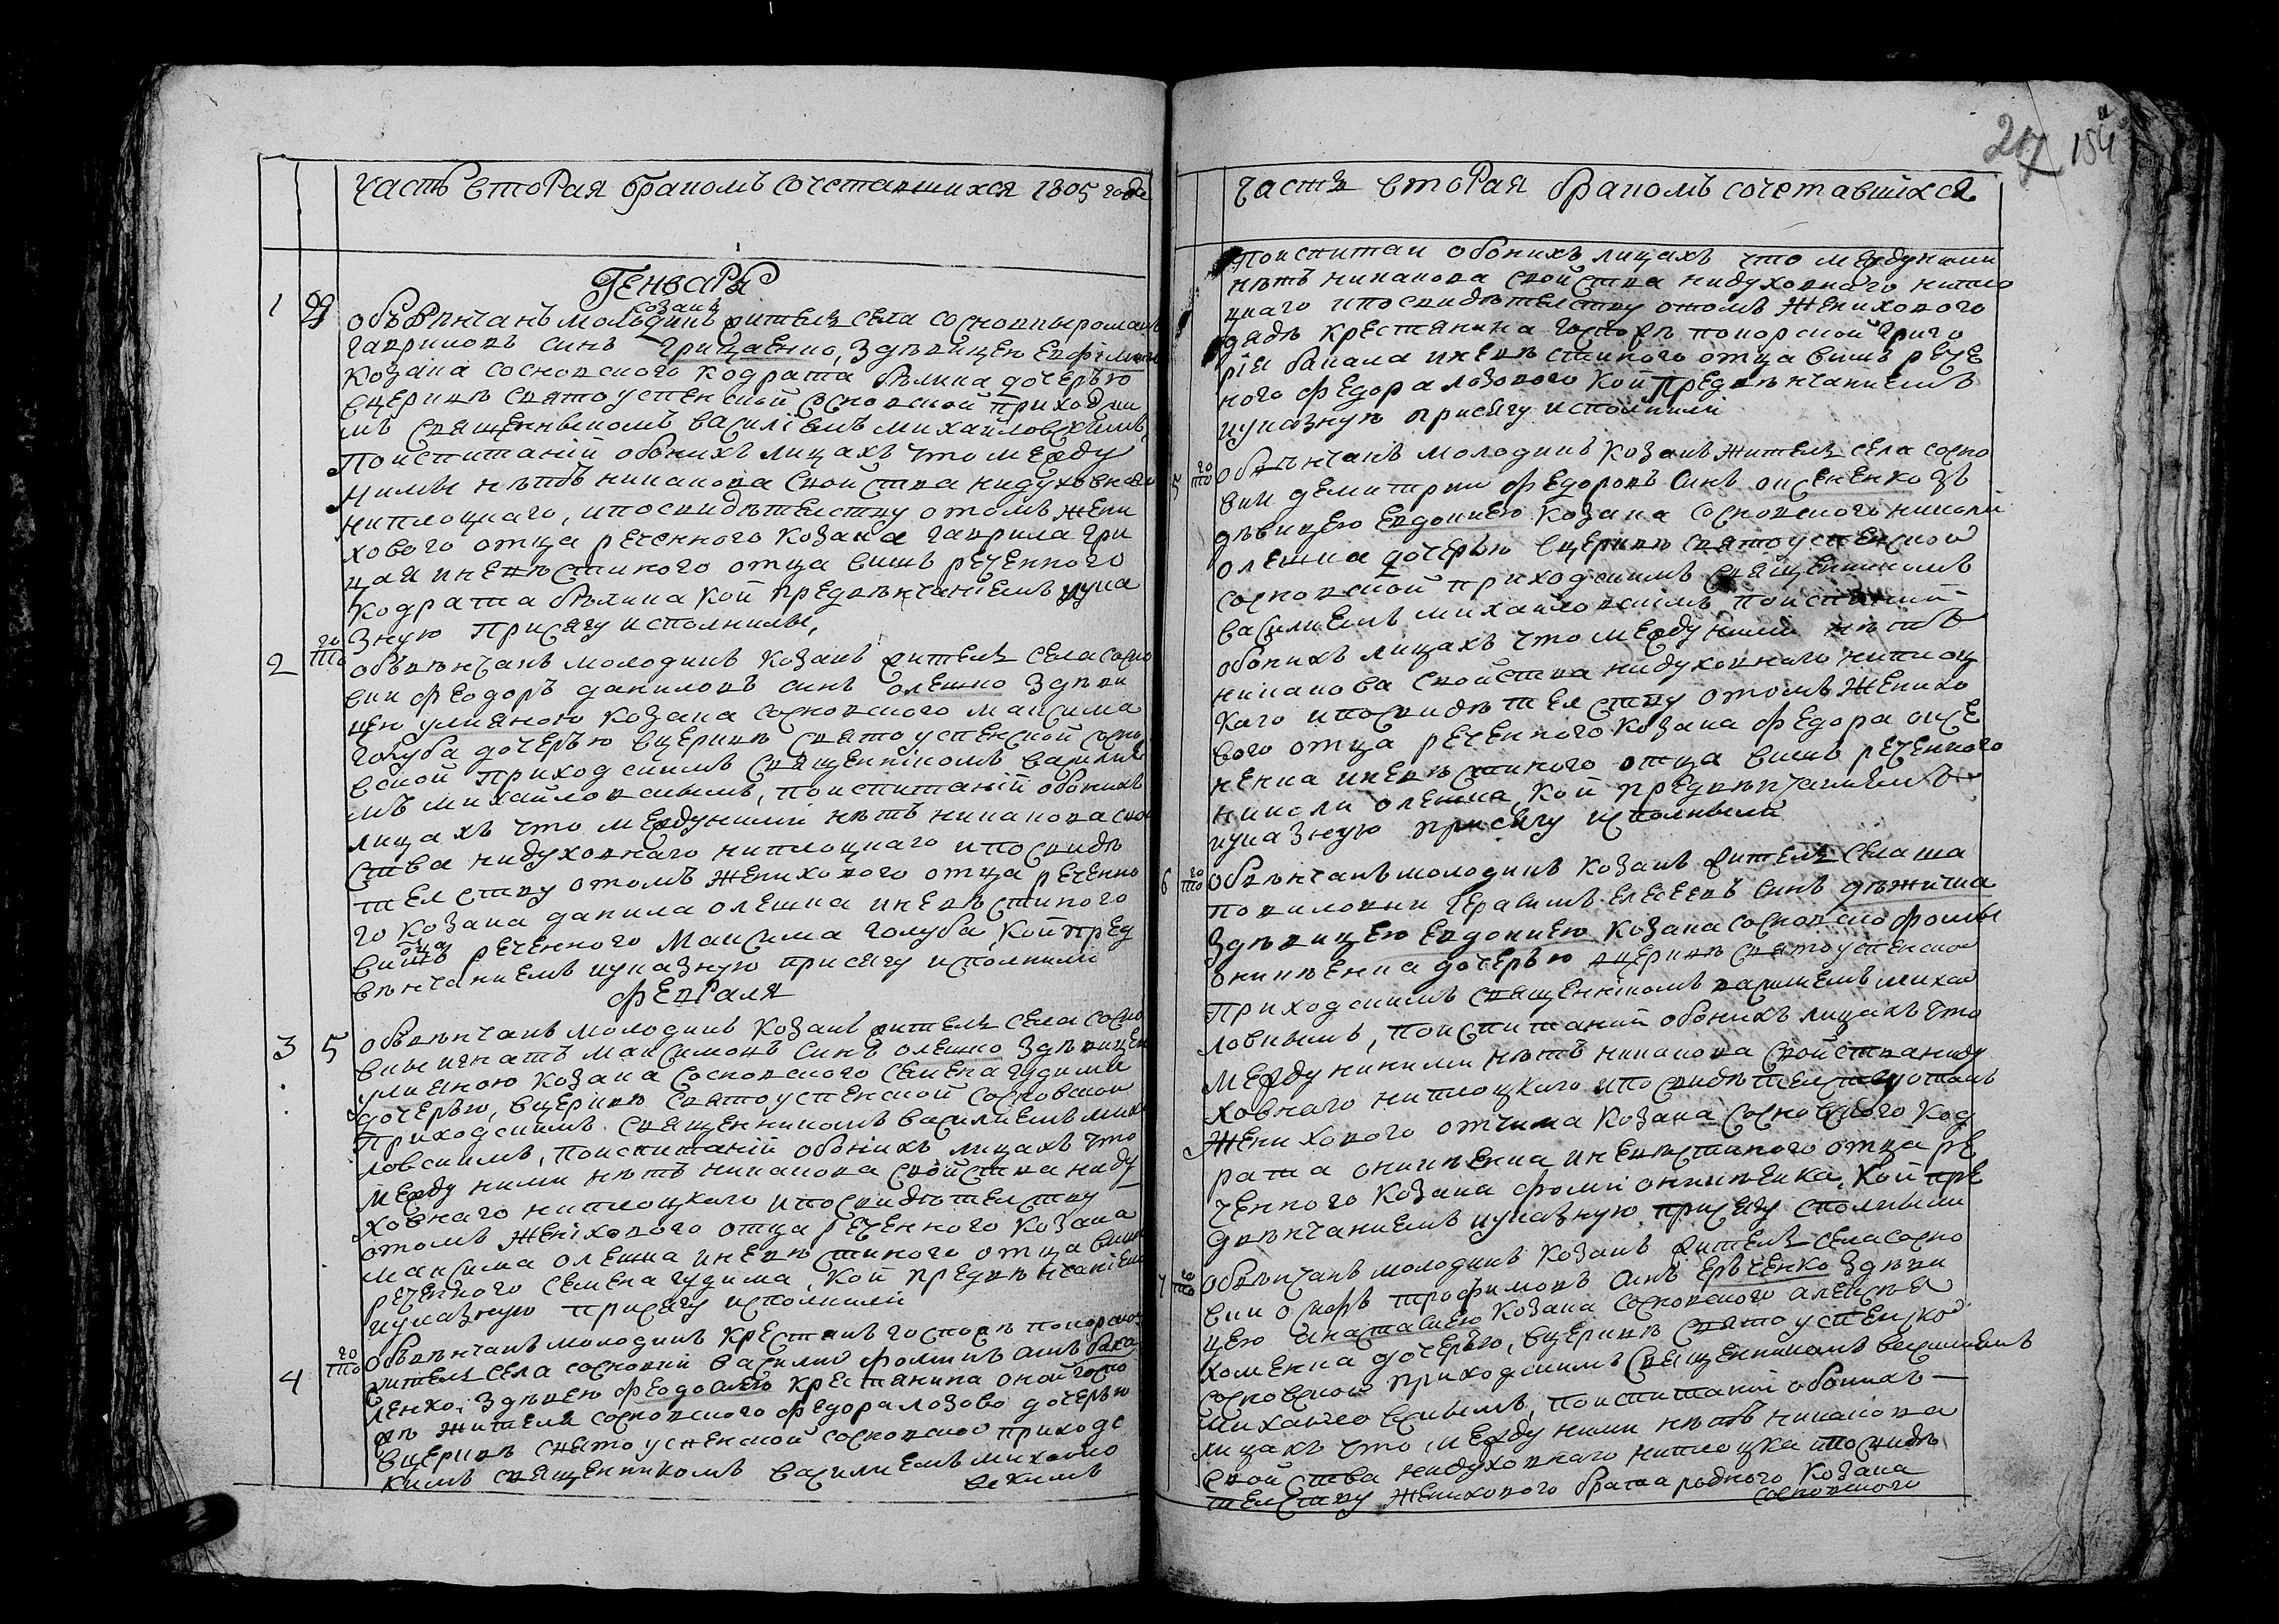 Часть вторая бракомъ сочетавшихся 1805 года
Генварь
1
29
козакъ
обвѣнчанъ молодикъ житель села сосновки роман
гавриловъ синъ грицаенко, здѣвицею евфими
козака сосновского кодрата бѣлика дочерью
вцерквѣ святоуспенской сосновской приходски
мъ священникомъ василіемъ михайловскимъ,
поиспитаній обоихъ лицахъ что между
ними нѣтъ никакова свойства нидуховнаго
ниплоцкаго, ипосвидѣтелству отомъ жени
хового отца реченного козака гаврила гри
цая иневѣстиного отца вишъ реченного
кодрата бѣлика кой предвѣнчаніемъ иука
зную присягу исполнилы,
2
го
то
обвѣнчанъ молодикъ козакъ житель села сосно
вки феодоръ даниловъ синъ олешко здѣви
цею улияною козака сосновского максима
голуба дочерью вцерквѣ святоуспенской сосно
вской приходскимъ священнікомъ василие
мъ михайловскимъ, поиспитаній обоихъ
лицахъ что междуними нѣтъ никакова свой
ства нидуховнаго ниплоцкаго ипосвидѣ
телству отомъ женихового отца реченно
го козака данила олешка иневѣстиного
отца
вишъ реченного максима голуба, кой пред
вѣнчаниемъ иуказную присягу исполнили
февраля
3
5
обвѣнчанъ молодикъ козакъ житель села сосно
вки игнатъ максимовъ синъ олешко здѣвицею
улияною козака сосновского семена гудима
дочерью, вцерквѣ святоуспенской сосновской
приходскимъ священникомъ василиемъ михай
ловскимъ, поиспитаній обоіихъ лицахъ что
между ними нѣтъ никакова свойства ниду
ховнаго ниплоцкаго ипосвидѣтелству
отомъ женіхового отца реченного козака
максима олешка иневѣстиного отца вишъ
реченного семена гудима, кой предвѣнчаніемъ
иуказную присягу исполнилі
4
го
то
обвѣнчанъ молодикъ крестянъ госпожѣ покорской
житель села сосновки василий фоминъ синъ бака
ленко, здѣвею феодосиею крестянина оной госпо
жѣ жителя сосновского федора лозово дочерью
вцерквѣ святоуспенской сосновской приходс
кимъ священникомъ василиемъ михайло
вскимъ
27
154
Часть вторая бракомъ сочетавшихся
поиспитаи обоихъ лицахъ что междуними
нѣтъ никакова свойства нидуховнаго нипло
цкаго ипосвидѣтелству отомъ женихового
дядѣ крестянина госпожѣ покорской григо
рій бакала иневѣстиного отца вишъ рече
ного федора лозового кой предвѣнчаниемъ
иуказную присягу исполнилі
5
го
то
обвѣнчанъ молодикъ козакъ житель села сосно
вки демитрии федоровъ синъ оксененко зъ
дѣвицею евдокиею козака сосновского николи
олешка дочерью вцерквѣ святоуспенской
сосновской приходскимъ священникомъ
василиемъ михайловскимъ поиспитаний
обоихъ лицахъ что между ними нѣтъ
никакова свойства нидуховнаго ниплоц
каго ипосвидѣтелству отомъ женихо
вого отца реченного козака федора оксе
ненка иневѣстиного отца вишъ реченного
николи олешка, кой предвѣнчаниемъ
иуказную присягу исполныли
6
го
то
обвѣнчанъ молодикъ козакъ житель села ша
повиловки герасимъ елесеевъ синъ
здѣвицею евдокиею козака сосновско фомы
оникѣенка дочерью вцерквѣ святоуспенской
приходскимъ священнікомъ василиемъ михай
ловкымъ, поиспитаний обоихъ лицахъ что
между ниними нѣтъ никакова свойстванидy
ховнаго ниплоцкаго ипосвидѣтелству отомъ
женихового отчима козака сосновского код
рата оникѣенка иневѣстиного отца ре
ченного козака фомы оникѣенка, кой пре
двѣнчаниемъ иуказную присягу сполныли
7
обвѣнчанъ молодикъ козакъ житель села сосно
вки осифъ трофимовъ синъ ерѣченко здѣви
цею анастасиею козака сосновского алексѣя
хоменка дочерью, вцерквѣ святоуспенско
сосновской приходскимъ священникомъ василиемъ
михайловскымъ, поиспитаній обоихъ
лицахъ что между ними нѣтъ никакова
свойства нидуховнаго ниплоцка ипосвидѣ
телству женихового брата родного козака
сосновского